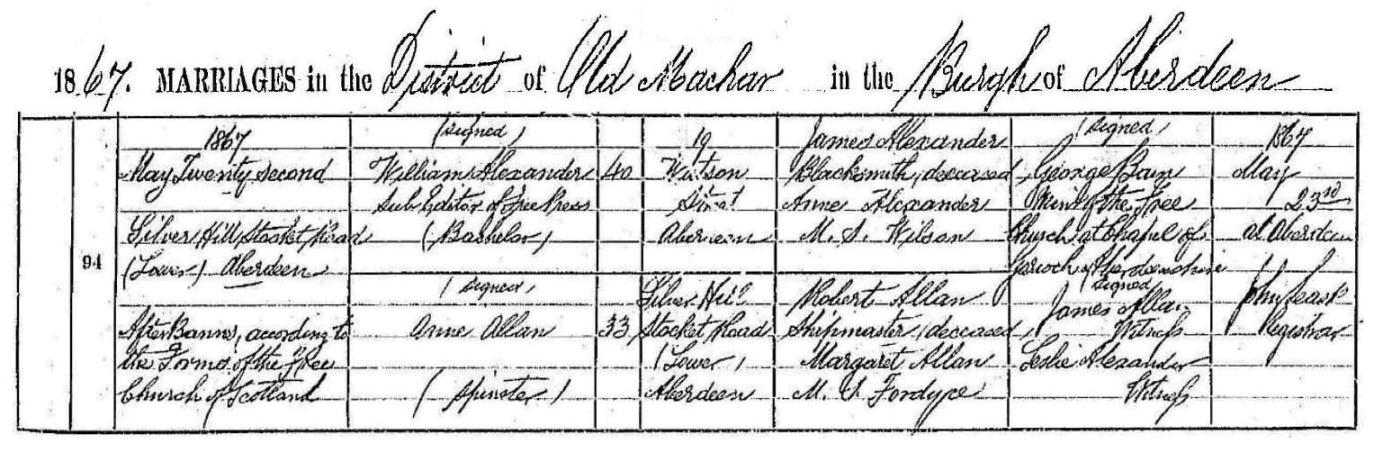 1867. MARRIAGES in the District of Old Machar in the Burgh of Aberdeen
94
1867
May Twenty second
Silver Hill, Stocket Road
(Lower) Aberdeen
After Banns, according to
the Forms of the Free
Church of Scotland
(signed)
William Alexander
Sub Editor of Free Press
(Bachelor)
(signed)
Anne Allan
(Spinster)
40
33
19
Watson
Street
Aberdeen
Silver Hill
Stocket Road
(Lower)
Aberdeen
James Alexander
Blacksmith, deceased
Anne Alexander
M.S. Wilson
Robert Allan
Shipmaster, deceased
Margaret Allan
M.S. Fordyce
(signed)
George Bain
Min. of the Free
Church at Chapel of
Garioch, Aberdeenshire
(signed)
James Allan
Witness
Leslie Alexander
Witness
1867
May
23rd
at Aberdeen
John
Registrar